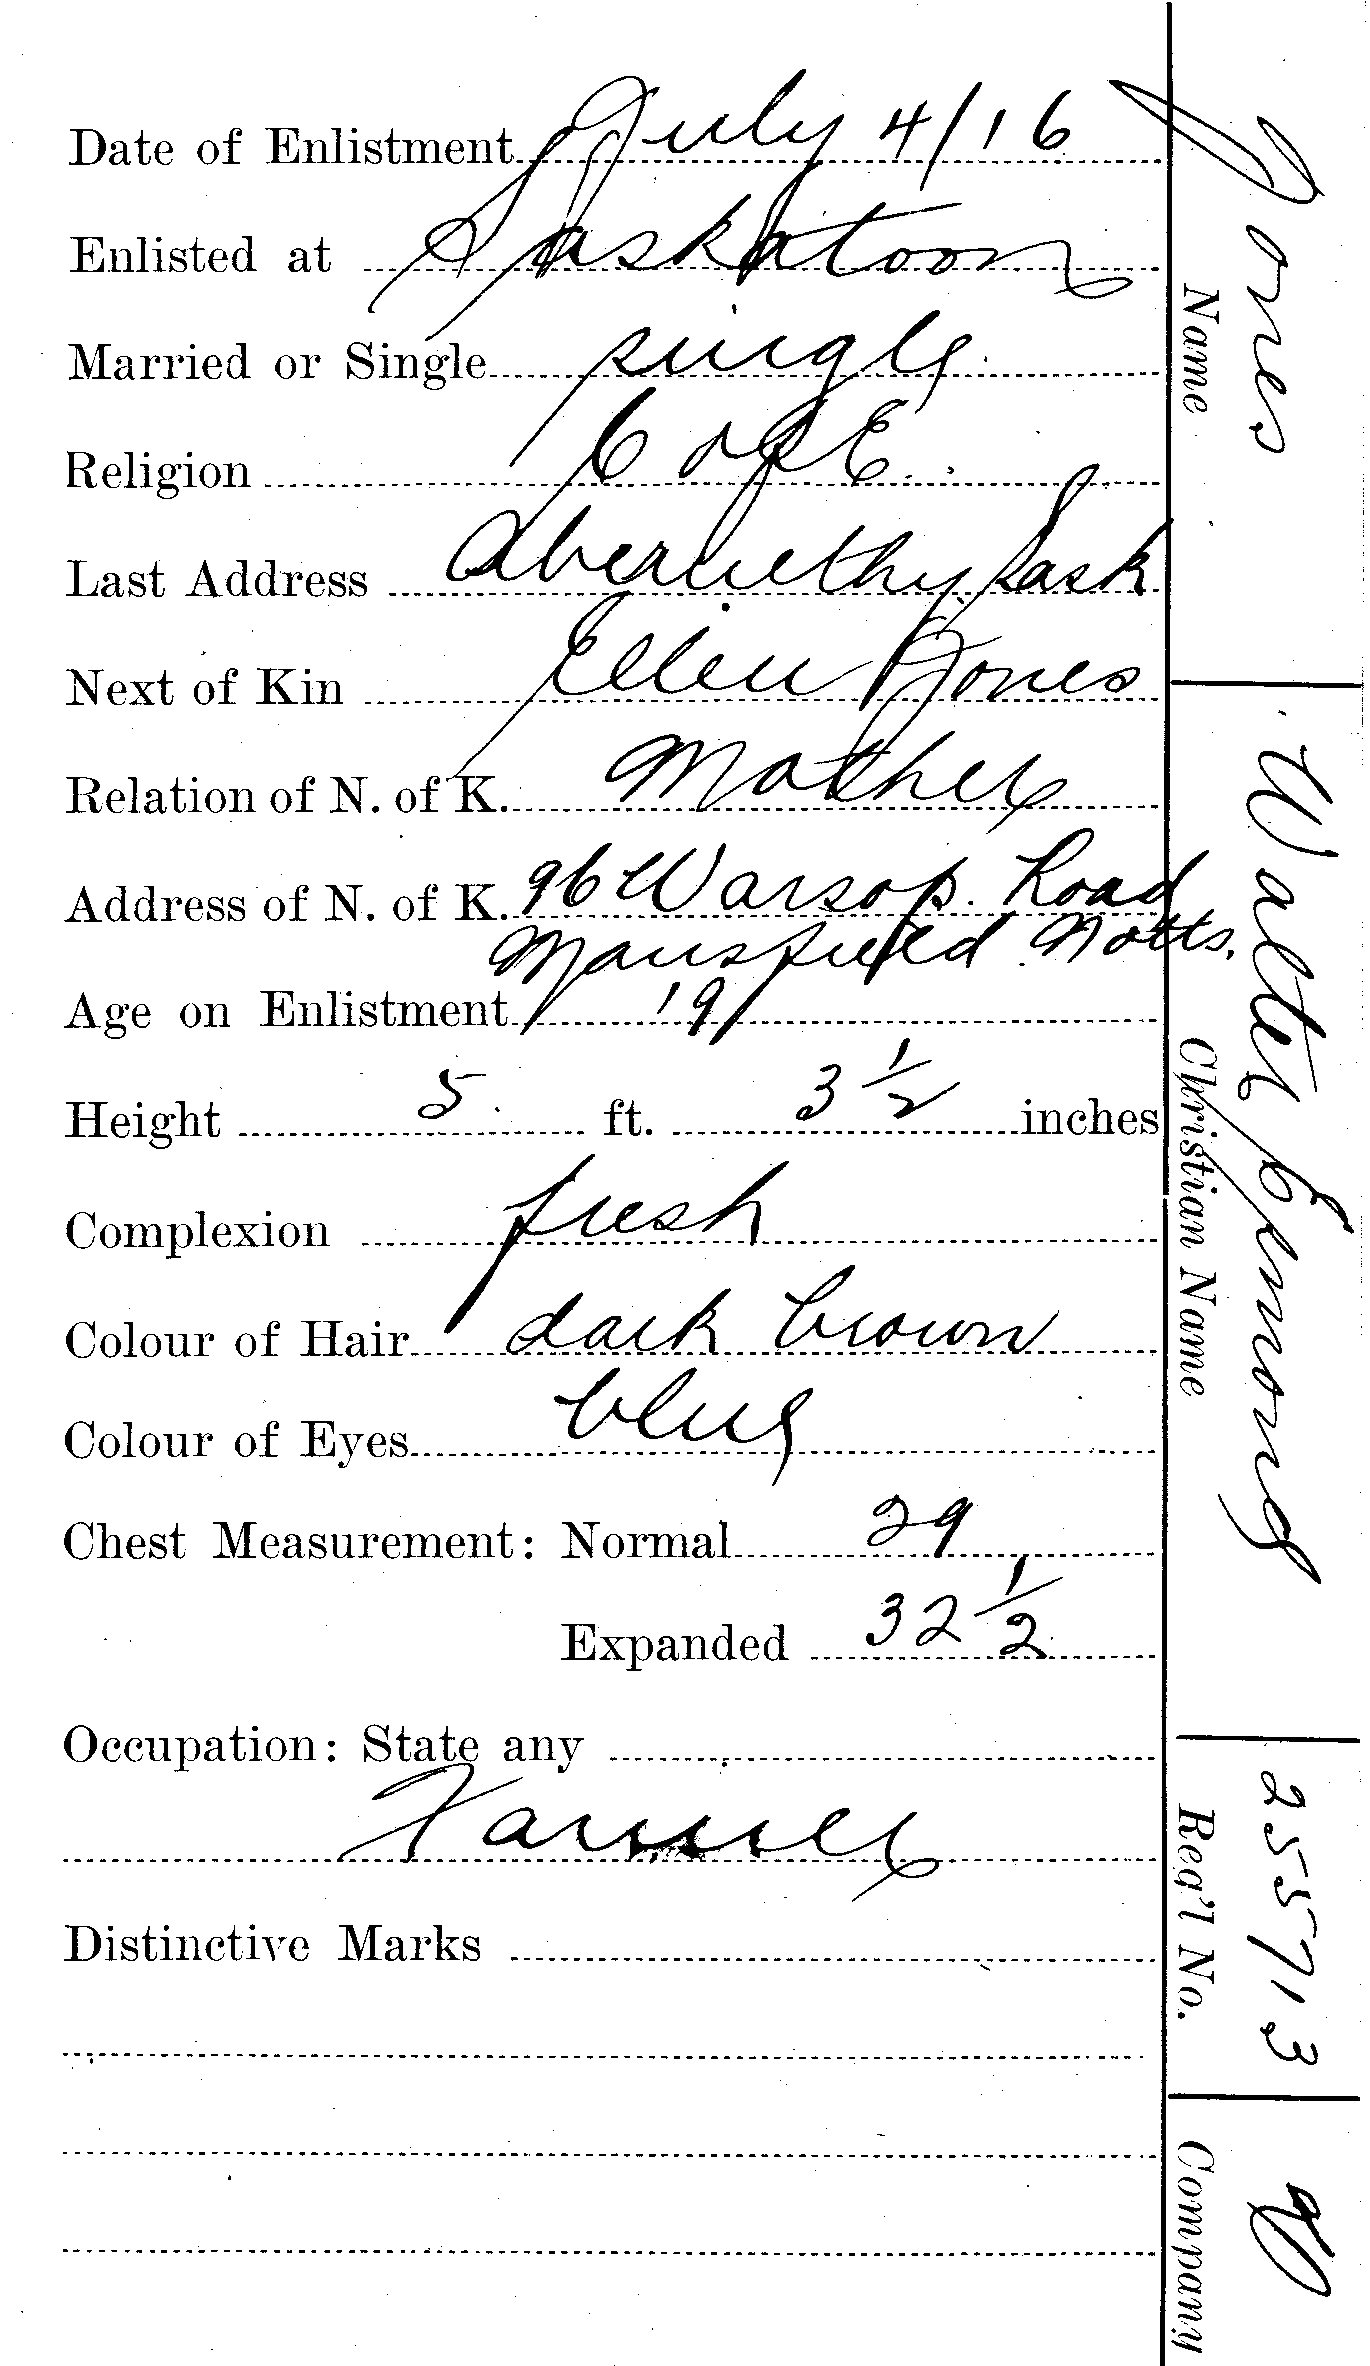 Date of Enlistment July 4/16
Enlisted at Saskatoon
Married or Single single
Religion C of E
Last Address Abernethy Sask
Next of Kin Ellen Jones
Relation of N. of K. Mother
Address of N. of K. 96 Warsop Road
Mansfield Notts.
Age on Enlistment 19
Height 5 ft. 3 1/2 inches
Complexion fresh
Colour of Hair dark brown
Colour of Eyes blue
Chest Measurement: Normal 29
Expanded 32 1/2
Occupation: State any
Farmer
Distinctive Marks
Jones
Name
Walter
Christian Name
255713
Reg'l No.
Company